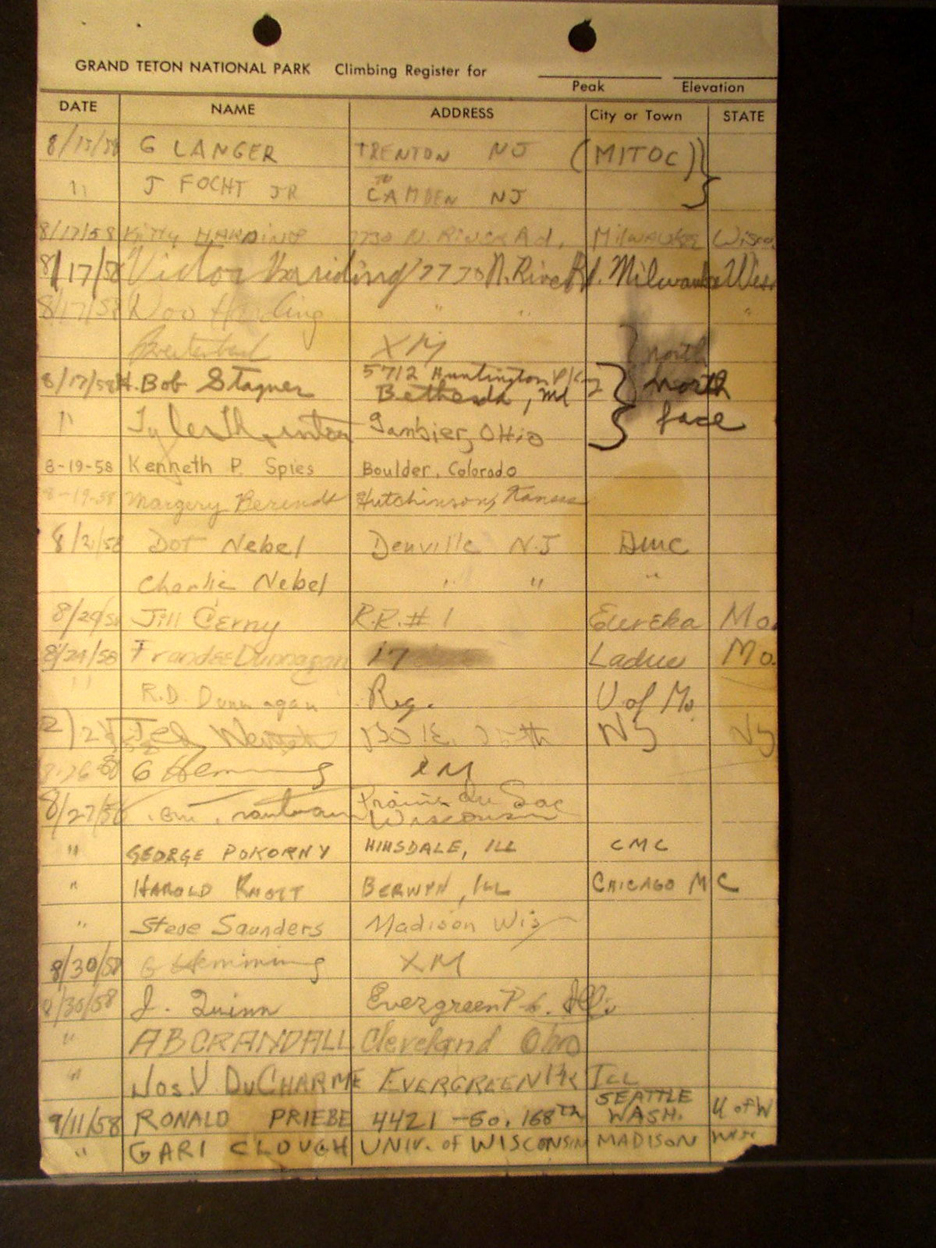 GRAND TETON NATIONAL PARK Climbing Register for
Peak Elevation
DATE NAME ADDRESS City or Town STATE
8/15/58 G LANGER TRENTON NJ (MITOC)
" J FOCHT JR CAMDEN NJ
8/17/58 Kitty HARDING N. River Rd. Milwaukee Wisc.
8/17/58 Victor Harding 7730 N. River Rd. Milwaukee Wisc.
8/17/58 Harding " " "
XM north
8/17/58 H. Bob Stagner 5712 Huntington
Bethesda, Md north
" Gambier, OHio face
8-19-58 Kenneth P. Spies Boulder, Colorado
8-19-58 Margery Berendt Hutchinson, Kansas
8/21/58 Dot Nebel Denville N.J AMC
Charlie Nebel " " "
8/24/58 Jill Cerny R.R.# 1 Eureka Mo.
8/24/58 Dunnagan 17 Ladue Mo.
" R.D. Dunnagan U of Mo.
Ted NY NY
8-26-58 G Hemming XM
8/27/58 Prairie du Sac
Wisconsin
" GEORGE POKORNY HINSDALE, ILL CMC
" HAROLD KNOTT BERWYN, ILL CHICAGO M C
" Steve Saunders Madison Wis
8/30/58 G Hemming XM
8/30/58 J. Quinn Evergreen Pk. Ill.
" AB CRANDALL Cleveland Ohio
" Jos. V DuCHARME EVERGREEN PK ILL
SEATTLE
9/11/58 RONALD PRIEBE 4421 - So. 168th WASH. U of W
" GARI CLOUGH UNIV. of WISCONSIN MADISON